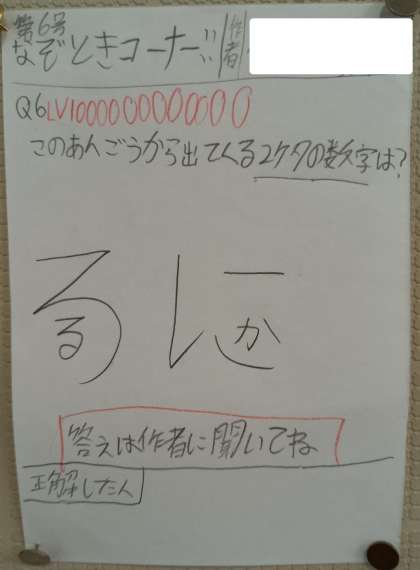 第6号
なぞときコーナー!!! 作者
Q6 LV100000000000
このあんごうから出てくる2ケタの数字は?
る に
る か
答えは作者に聞いてね
正解した人